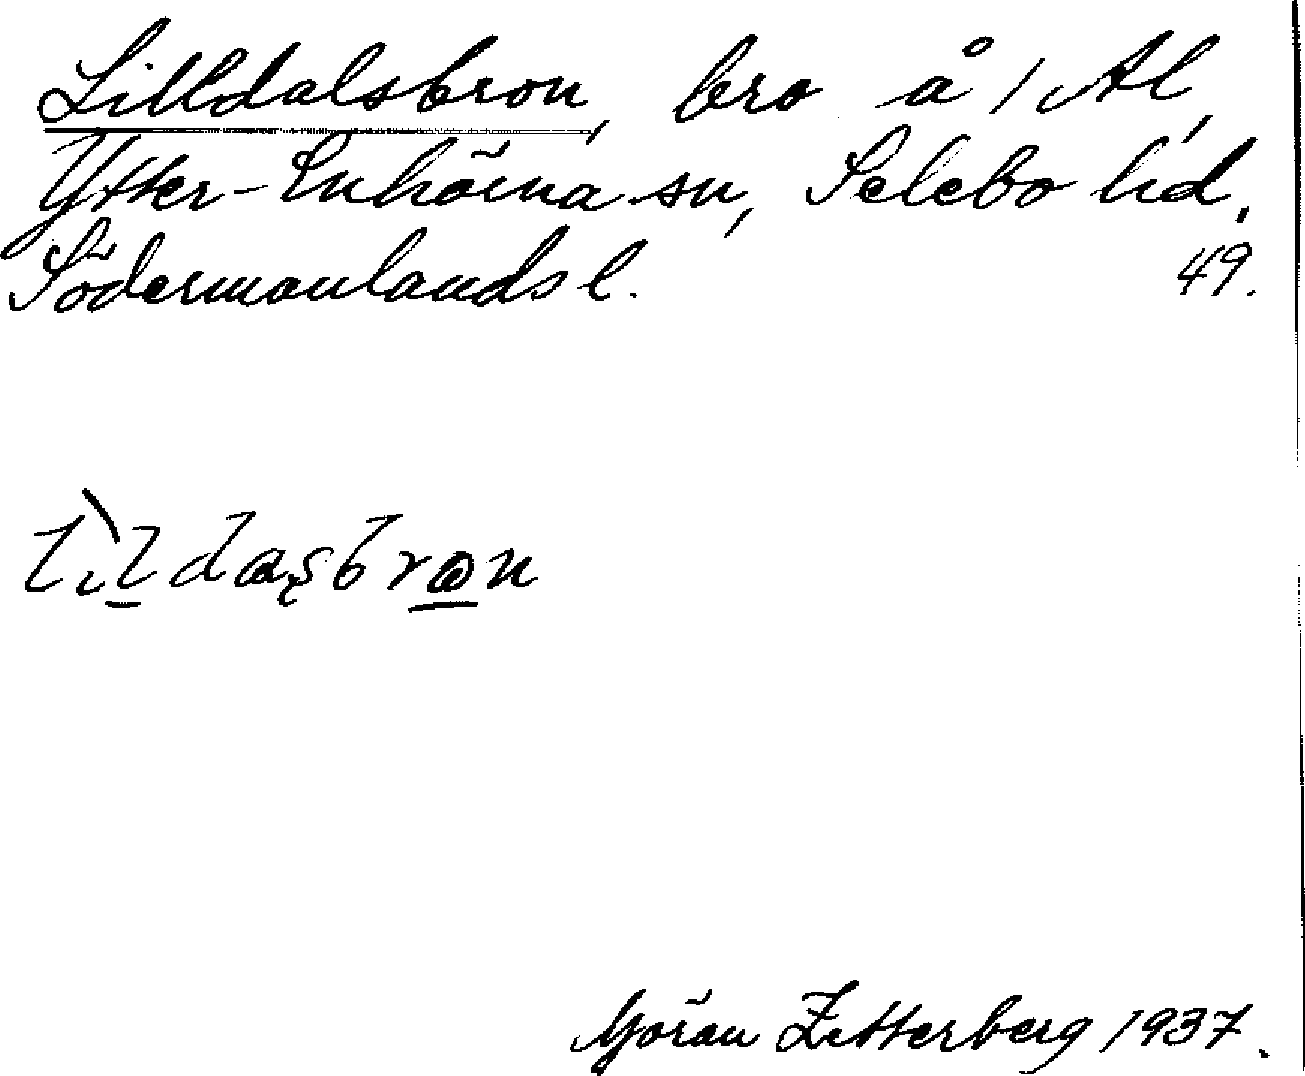 Lilldalsbron, bro å / Al,
Ytter-Enhörna sn, Selebo hd,
Södermanlands l. 49.
Göran Zetterberg 1937.